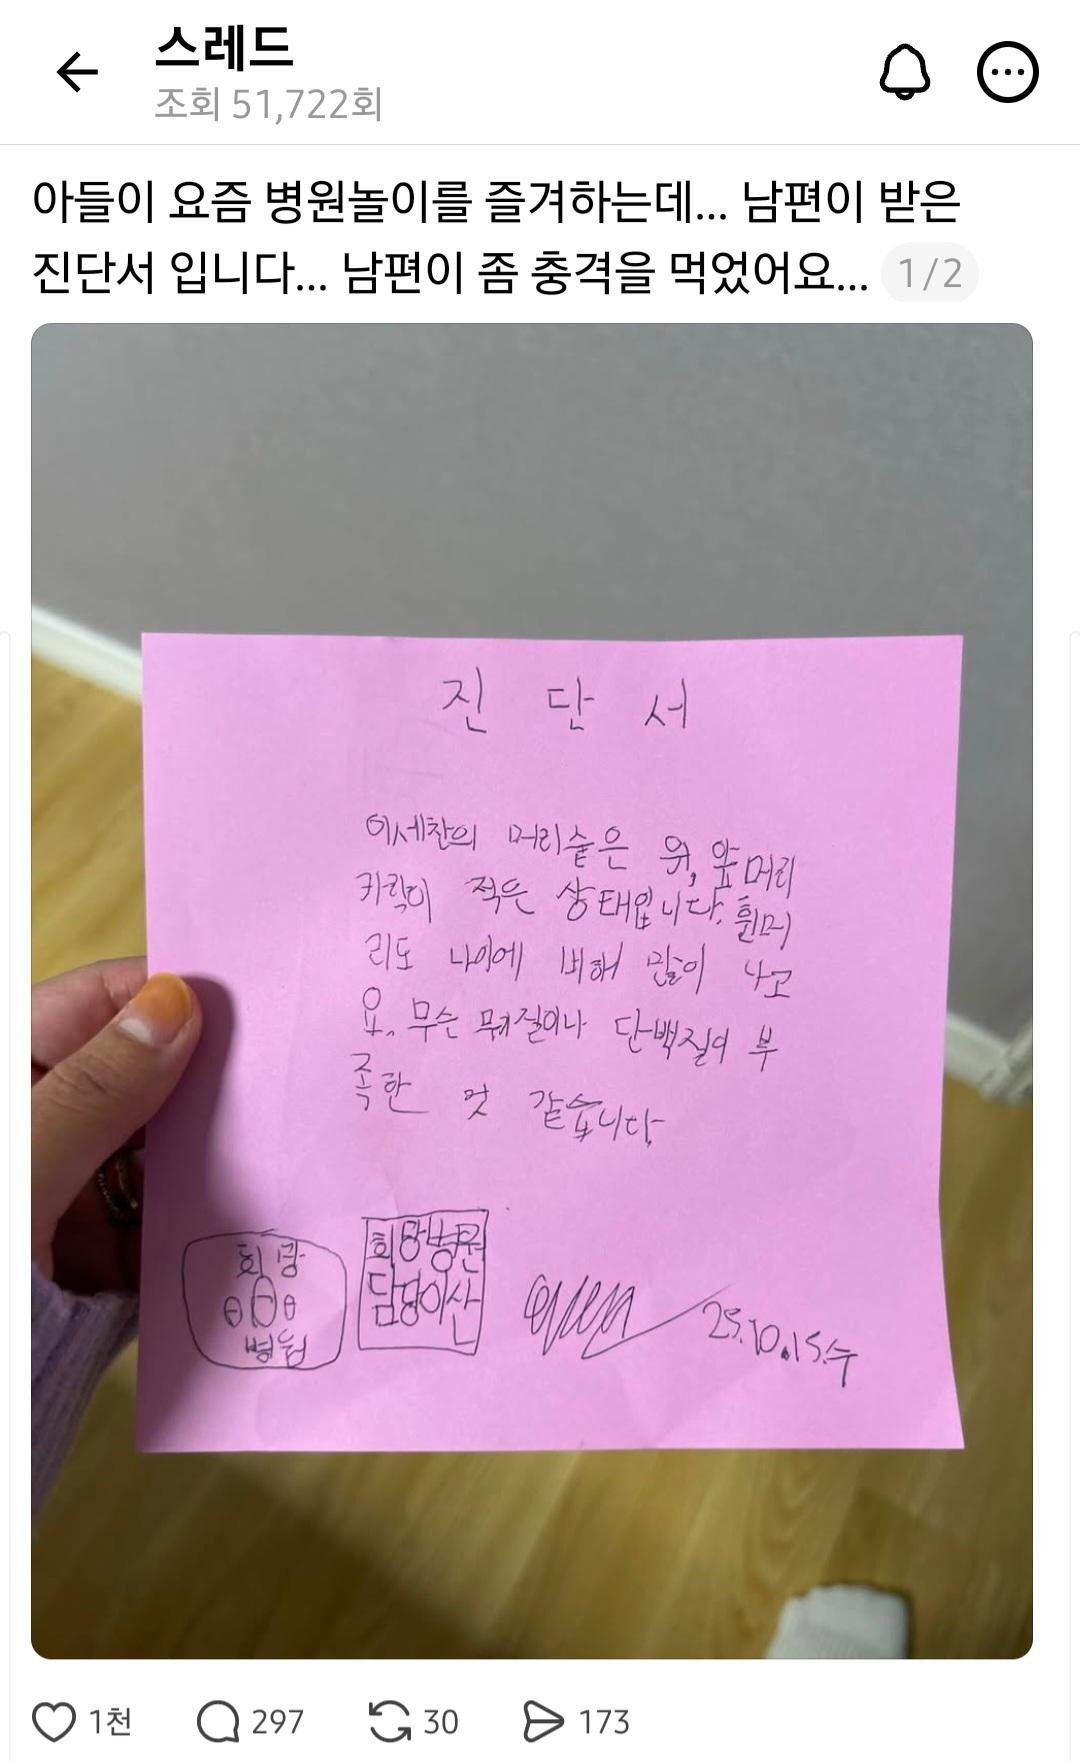 스레드
조회 51,722회
아들이 요즘 병원놀이를 즐겨하는데... 남편이 받은
진단서 입니다... 남편이 좀 충격을 먹었어요... 1/2
진 단 서
이세찬의 머리숱은 위, 앞머리
카락이 적은 상태입니다. 흰머
리도 나이에 비해 많이 나고
요. 무슨 뭐질이나 단백질이 부
족한 것 같습니다.
희망
병원
희망병원
담당이산
25.10.15.수
1천
297
30
173